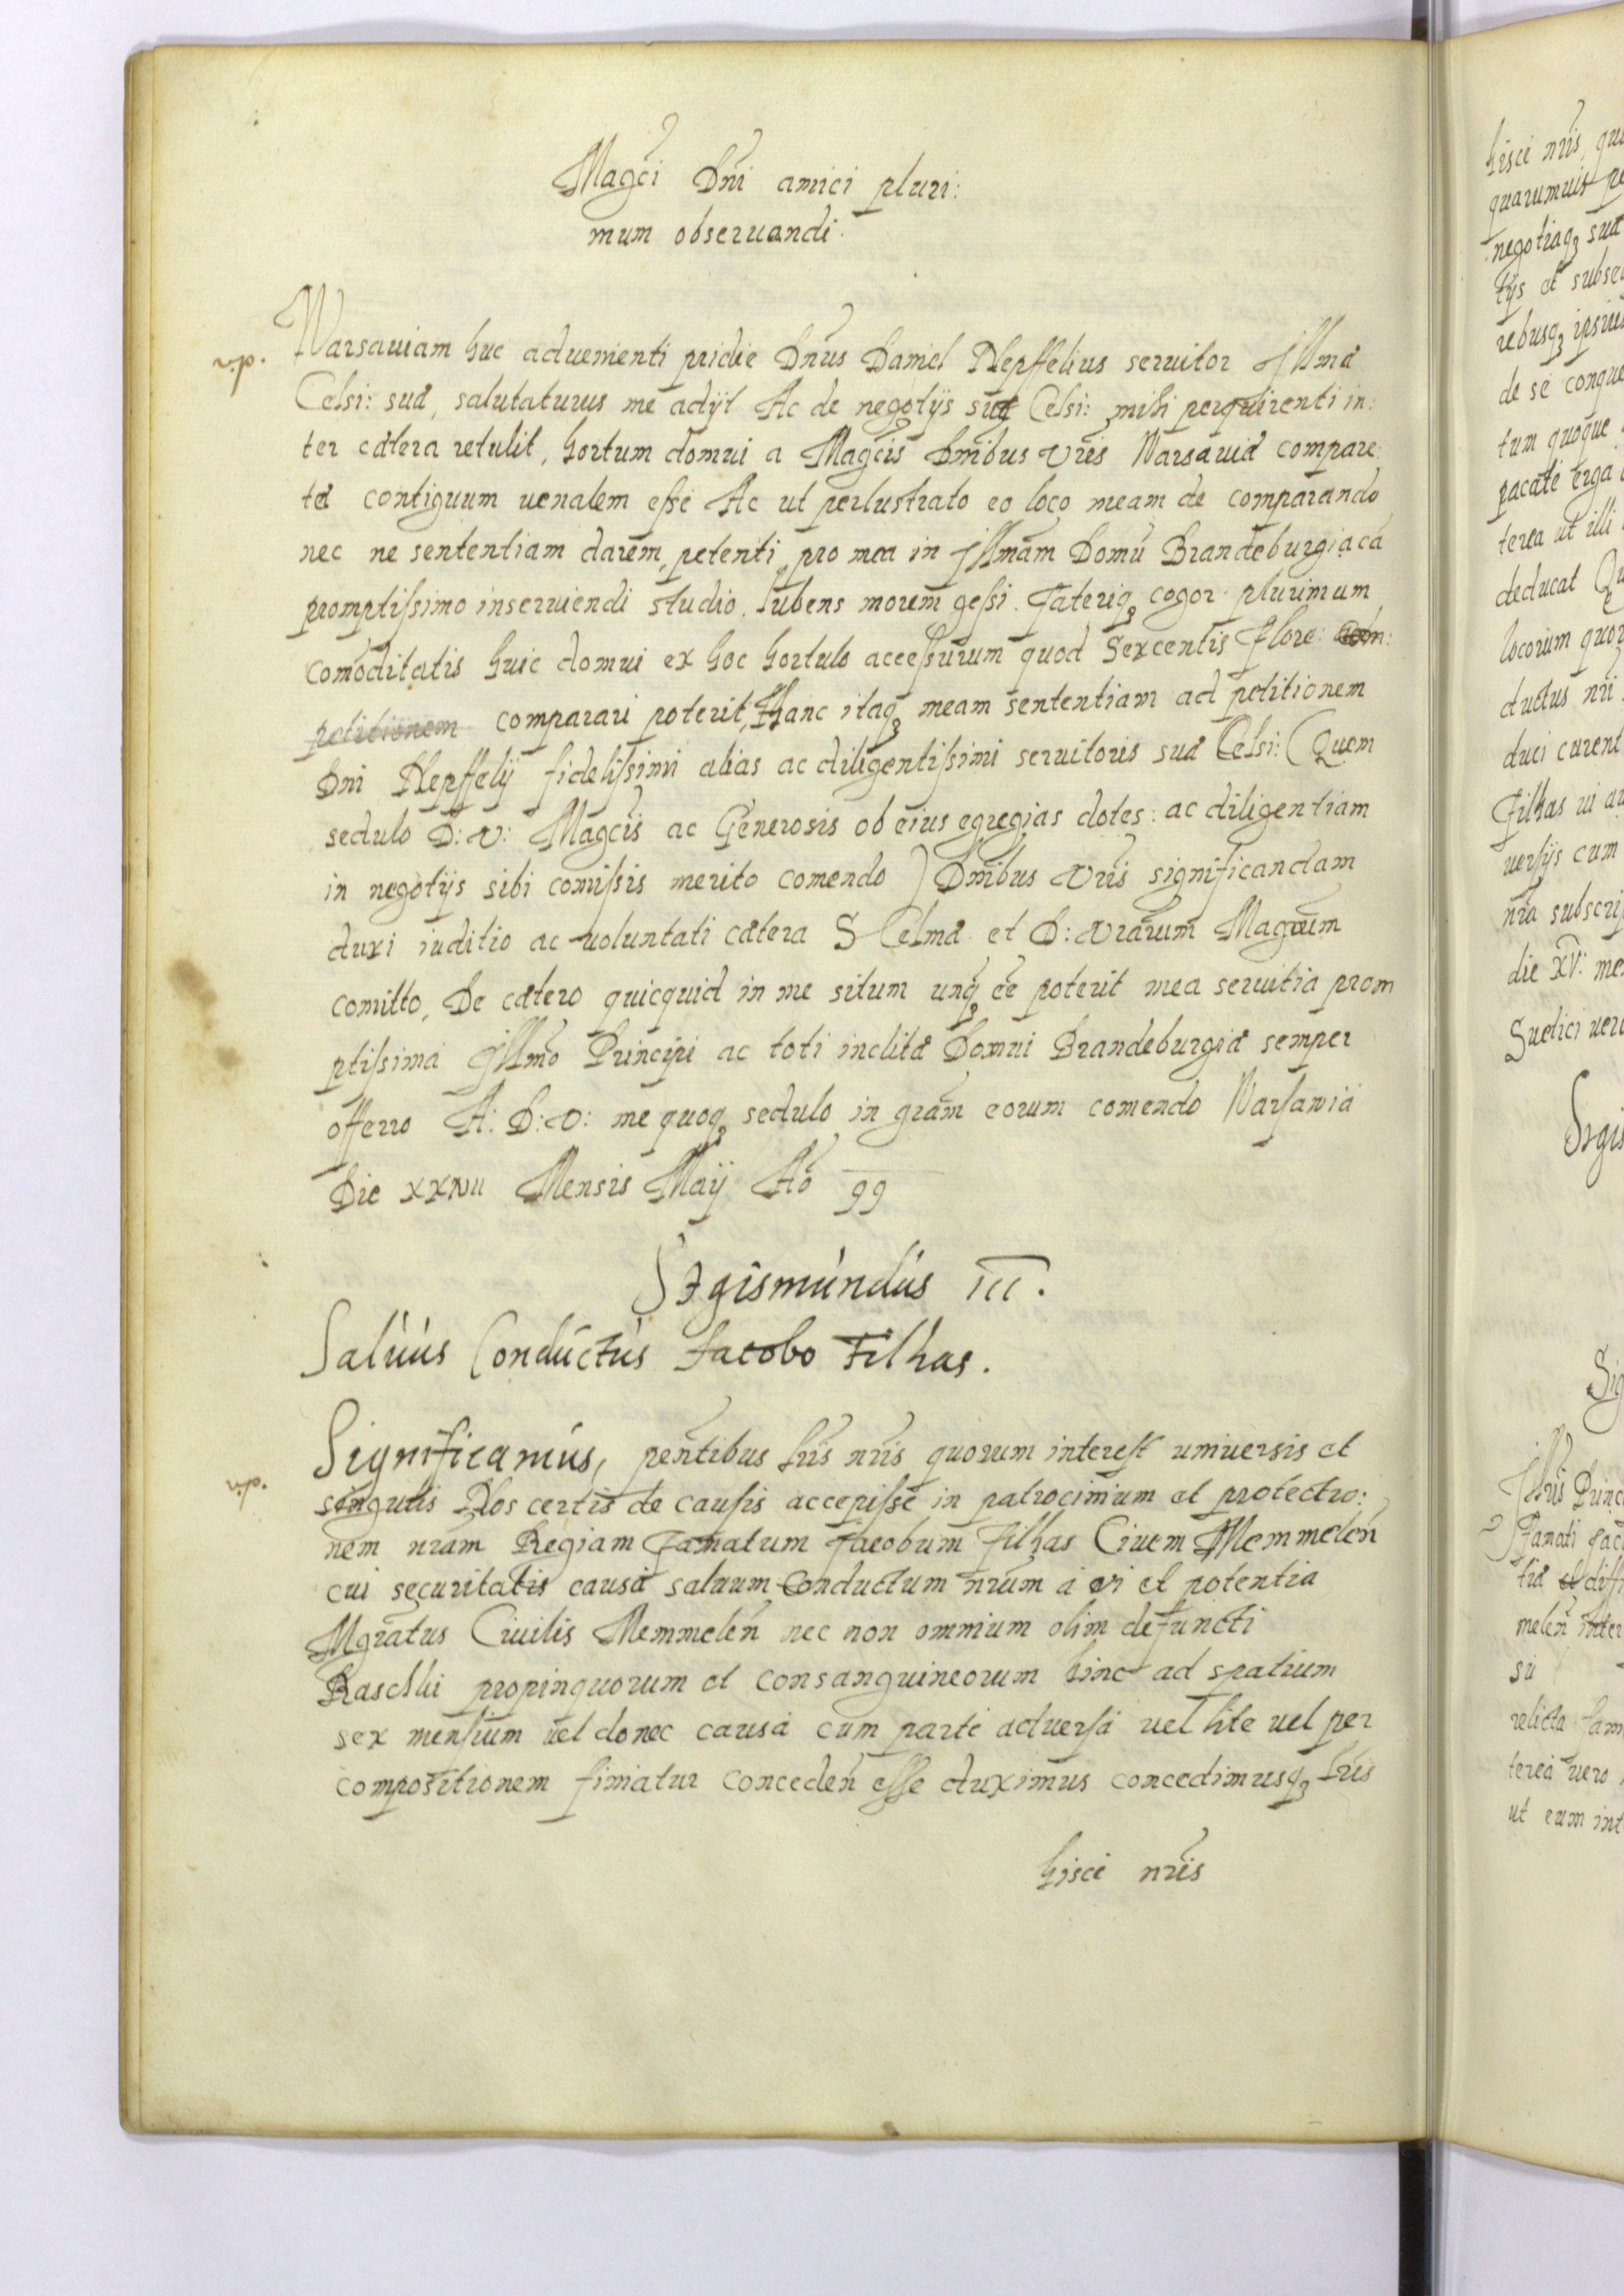 Magci Dni amici pluri:
mum obseruandi.
Warsauiam huc aduenienti pridie Dnus Daniel Nepffelius seruitor Illmæ
Celsi: suæ, salutaturus me adijt Ac de negotijs suæ Celsi: mihi perquirenti in:
ter cætera retulit, hortum domui a Magcis Dnibus Vris Warsauiæ compare:
tæ contiguum uenalem esse Ac ut perlustrato eo loco meam de comparando
nec ne sententiam darem, petenti, pro mea in Illmam Domū Brandeburgiacā
promptissimo inseruiendi studio. lubens morem gessi. Fateriqꝫ cogor plurimum
comoditatis huic domui ex hoc hortulo accessurum quod Sexcentis Flore:
petitionem comparari poterit, Hanc itaqꝫ meam sententiam ad petitionem
Dni Nepffelij fidelissimi alias ac diligentissimi seruitoris suæ Celsi: (Quem
sedulo D: V: Magcis ac Generosis ob eius egregias dotes: ac diligentiam
in negotijs sibi comissis merito comendo) Dnibus Vris significandam
duxi iuditio ac uoluntati cætera S Celmæ et D: Vrarum Magcum
comitto, De cætero quicquid in me situm unqꝫ ee poterit mea seruitia prom
ptissima Illmo Principi ac toti inclitæ Domui Brandeburgiæ semper
offerro A: D: V: me quoqꝫ sedulo in gram eorum comendo Warsauiæ
Die XXVII Mensis Maij Ao 99
Sigismundus III.
Saluus Conductus Jacobo Filhas.
Significamus, pentibus lris nris quorum interest uniuersis et
singulis Nos certis de causis accepisse in patrocinium et protectio:
nem nram Regiam Famatum Jacobum Filhas Ciuem Memmelen
cui securitatis causa saluum conductum nrum a vi et potentia
Mgratus Ciuilis Memmelen nec non omnium olim defuncti
Raschki propinquorum et consanguineorum hinc ad spatium
sex mensium uel donec causa cum parte aduersa uel lite uel per
compositionem finiatur conceden esse duximus concedimusqꝫ lris
hisce nris